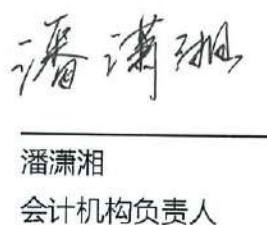 潘潇湘
潘潇湘
会计机构负责人